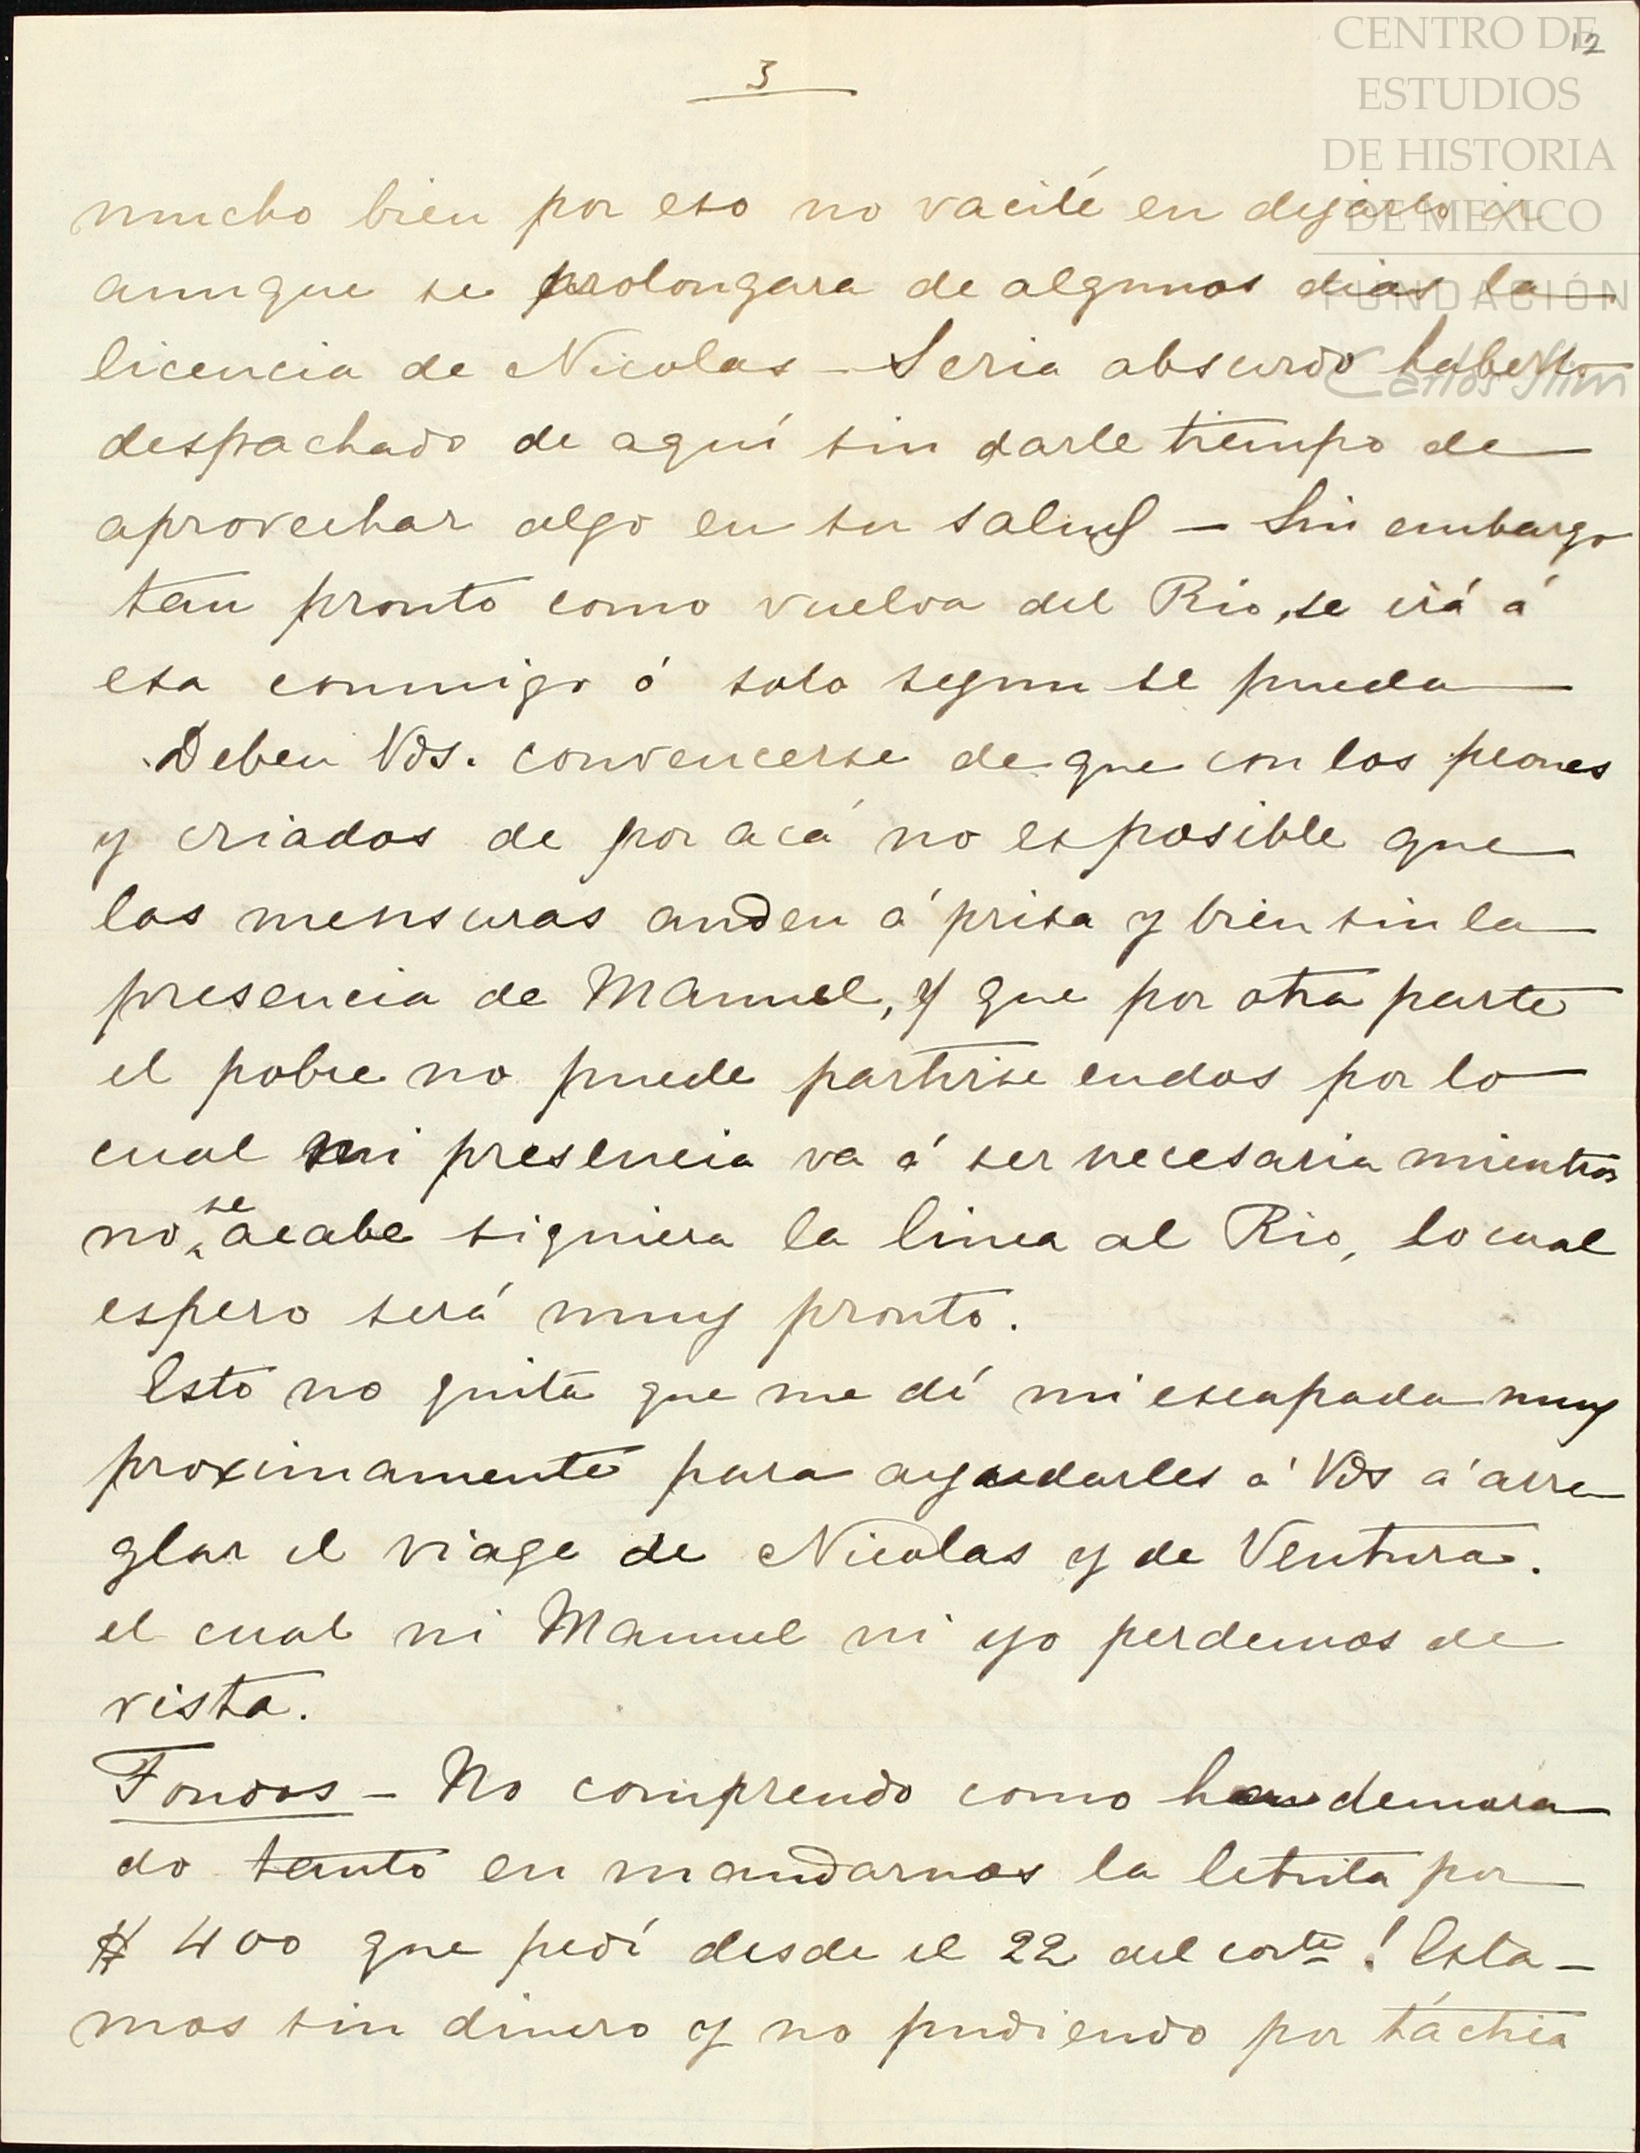 CENTRO DE
ESTUDIOS
DE HISTORIA
DE MÉXICO
FUNDACIÓN
Carlos Slim
12
3
mucho bien por eso no vacilé en dejarlo ir
aunque se prolongara de algunos dias la
licencia de Nicolas – Seria absurdo haberlo
despachado de aquí sin darle tiempo de
aprovechar algo en su salud – Sin embargo
tan pronto como vuelva del Rio, se irá á
esa conmigo ó solo segun se pueda
Deben Vds. convencerse de que con los peones
y criados de por acá no es posible que
las mensuras anden á prisa y bien sin la
presencia de Manuel, y que por otra parte
el pobre no puede partirse en dos por lo
cual mi presencia va á ser necesaria mientras
no se acabe siquiera la linea al Rio, lo cual
espero será muy pronto.
Esto no quita que me dé mi escapada muy
proximamente para ayudarles á Vds á arre
glar el viage de Nicolas y de Ventura.
el cual ni Manuel ni yo perdemos de
vista.
Fondos – No comprendo como han demora
do tanto en mandarnos la letrita por
$ 400 que pedí desde el 22 del corte! Esta–
mos sin dinero y no pudiendo por táctica